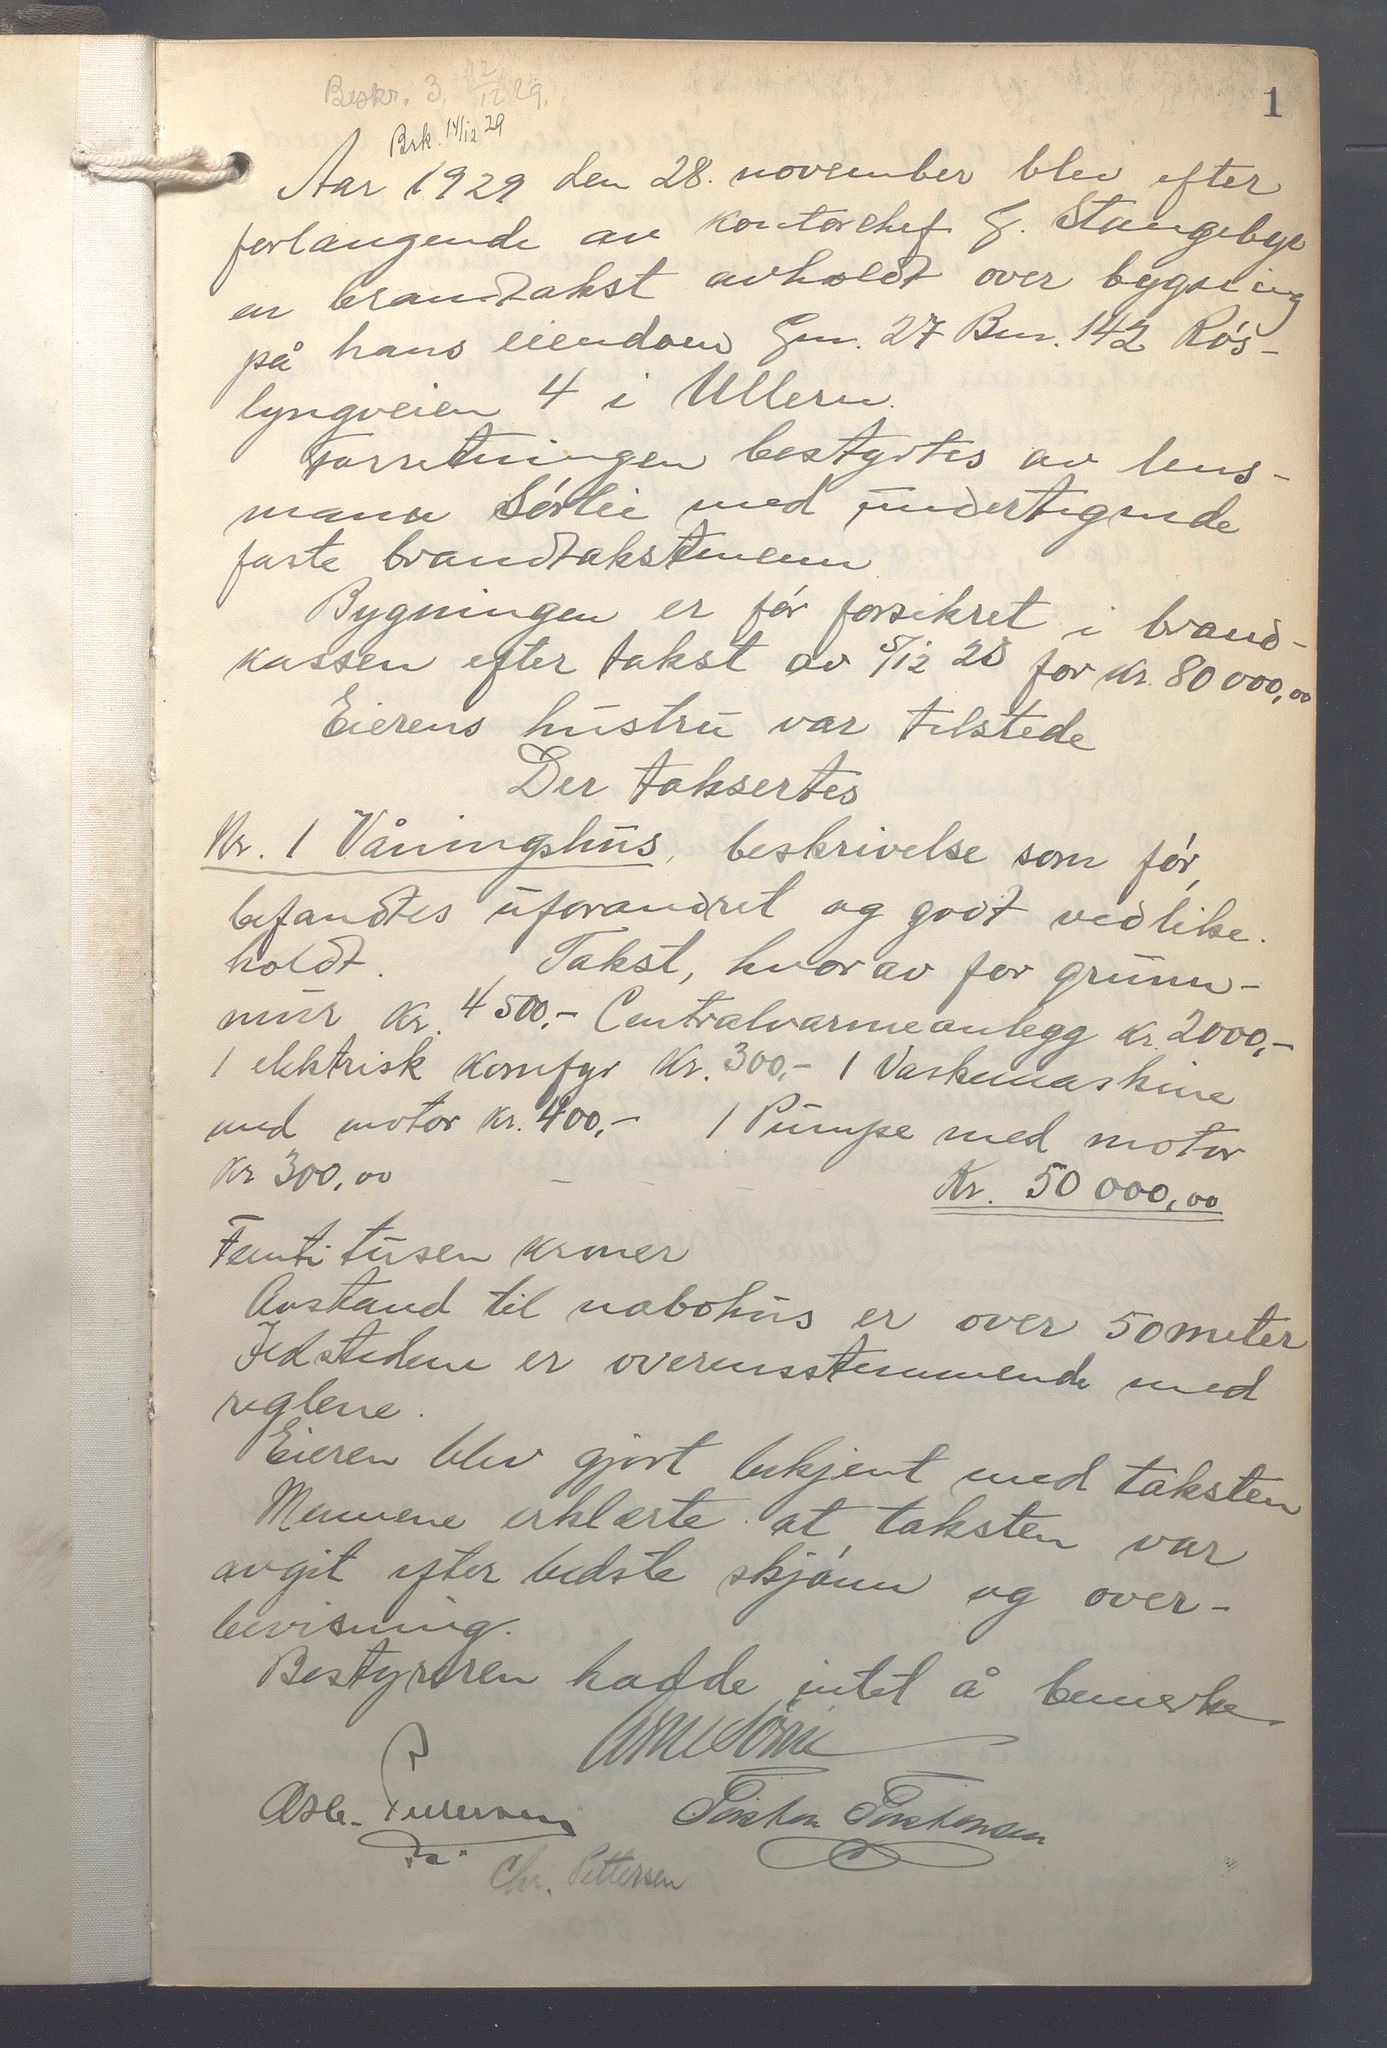 1
Beskr. 3, 12/12 29.
Brk. 14/12 29
Aar 1929 den 28. november blev efter
forlangende av kontorchef G. Stangebye
en brandtakst avholdt over bygning
på hans eiendom Gnr. 27 Bnr. 142 Rós-
lyngveien 4 i Ullern.
Forretningen bestyrtes av lens-
mann Sórlie med undertegnede
faste brandtakstmenn
Bygningen er fór forsikret i brand-
kassen efter takst av 5/12 28 for Kr. 80 000,00
Eierens hustru var tilstede
Der taksertes
Nr. 1 Våningshus, beskrivelse som fór,
befandtes uforandret og godt vedlike-
holdt. Takst, hvorav for grunn-
mur Kr. 4500,- Centralvarmeanlegg Kr. 2000,-
1 elektrisk komfyr Kr. 300,- 1 Vaskemaskine
med motor Kr. 400,- 1 Pumpe med motor
Kr 300,00 - - - - Kr. 50 000,00
Femti tusen kroner
Avstand til nabohus er over 50 meter
Ildstedene er overensstemmende med
reglene.
Eieren blev gjort bekjent med taksten
Mennene erklærte at taksten var
avgit efter bedste skjónn og over-
bevisning.
Bestyreren hadde intet å bemerke
Arne Sórlie
Osc. Pettersen Torsten Torstensen
Chr. Pettersen